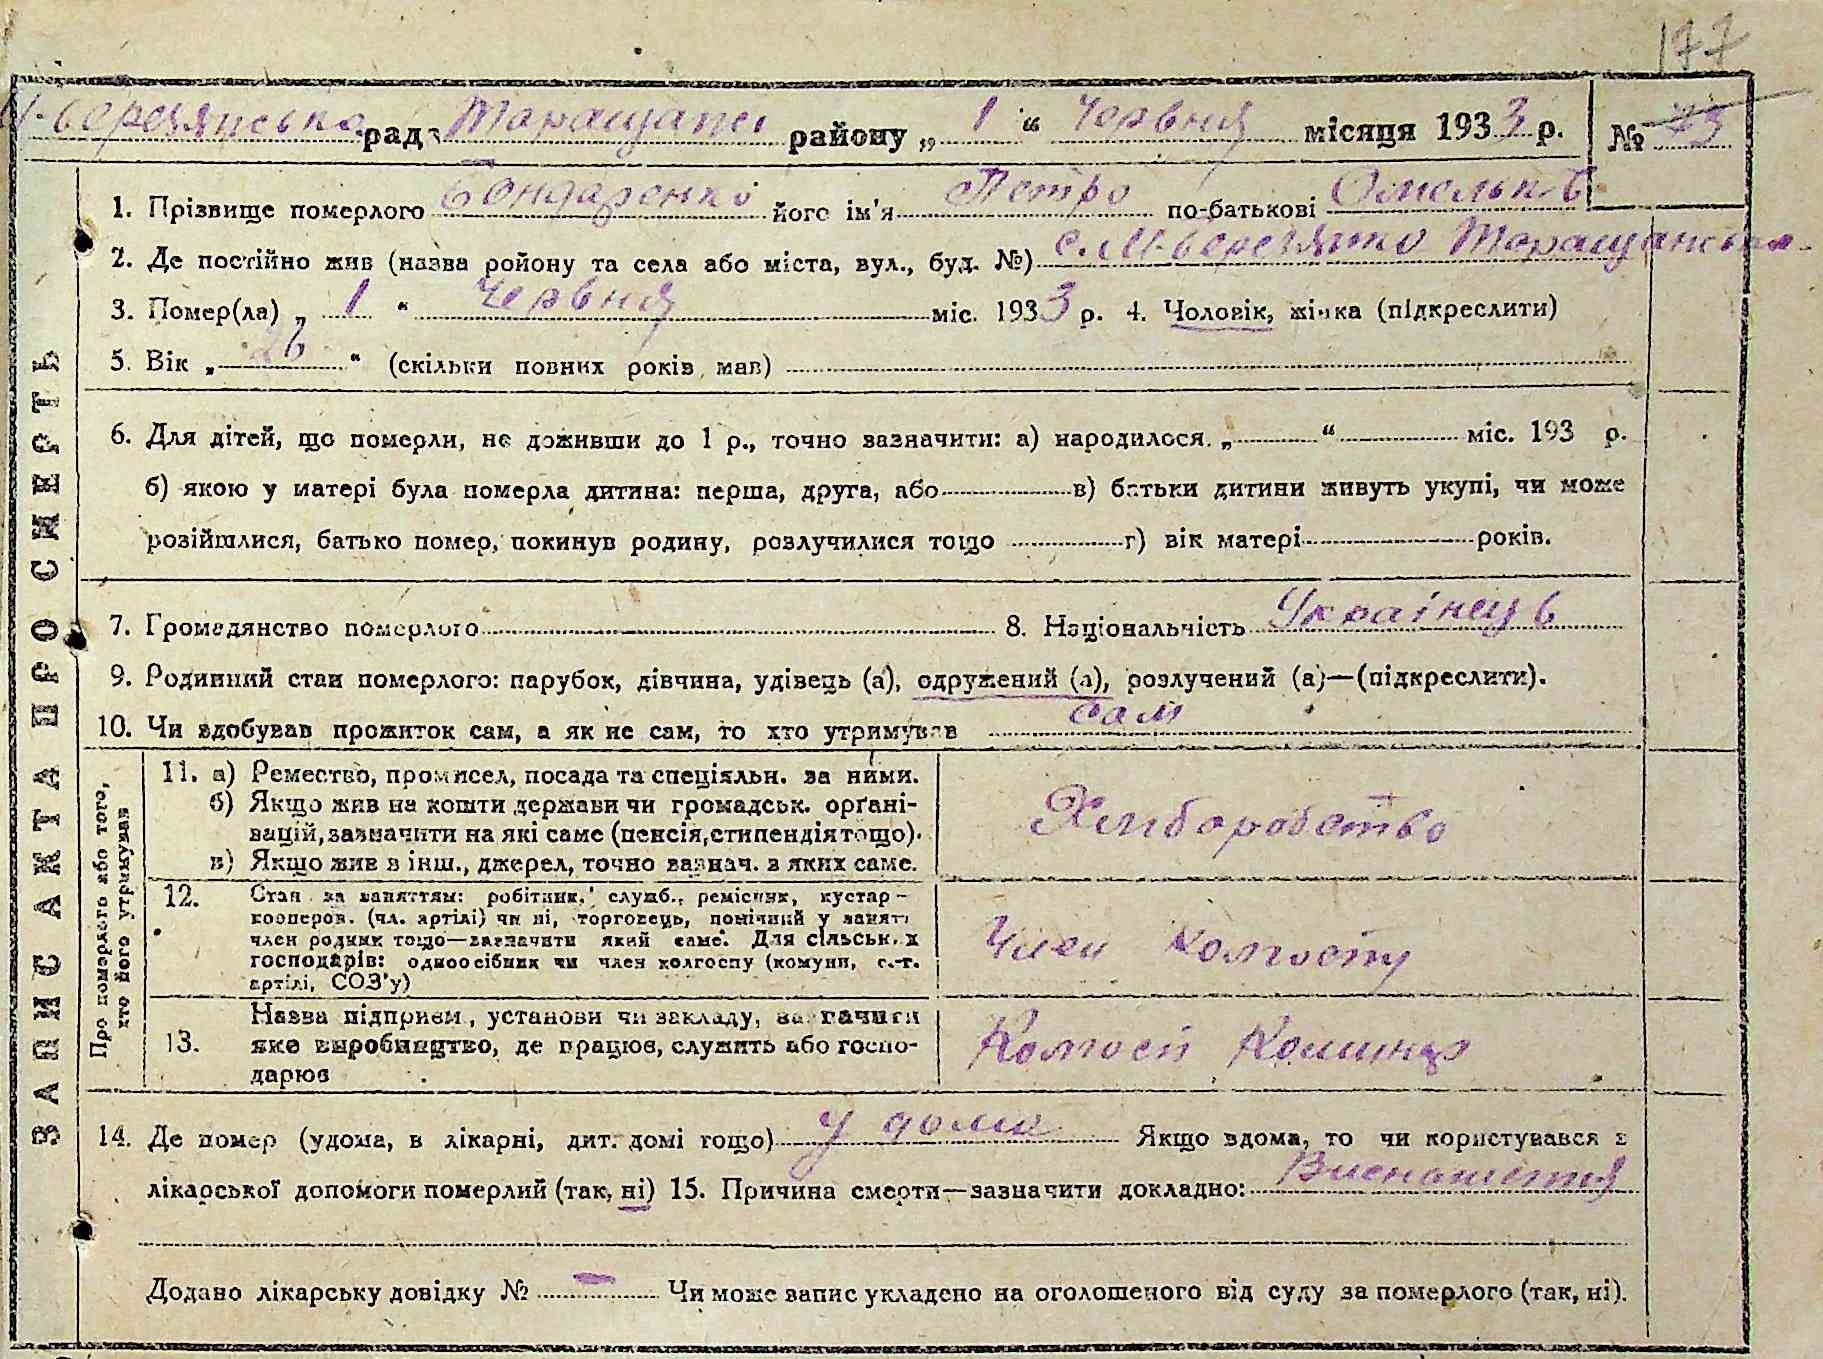 177
М-березянсько рада Таращансі району „ 1 “ Червня місяця 1933 р. № 73
1. Прізвище померлого Бондаренко його ім'я Петро по-батькові Омельк-в
2. Де постійно жив (назва ройону та села або міста, вул., буд. №) с. М-березянко Таращанськ
3. Помер(ла) „ 1 “ Червня міс. 1933 р. 4. Чоловік, жінка (підкреслити)
5. Вік „ 26 “ (скільки повних років мав)
6. Для дітей, що померли, не доживши до 1 р., точно зазначити: а) народилося „ “ міс. 193 р.
б) якою у матері була померла дитина: перша, друга, або в) батьки дитини живуть укупі, чи може
розійшлися, батько помер, покинув родину, розлучилися тощо г) вік матері років.
7. Громадянство померлого 8. Національність Українець
9. Родинний стан померлого: парубок, дівчина, удівець (а), одружений (а), розлучений (а)—(підкреслити).
10. Чи здобував прожиток сам, а як не сам, то хто утримував сам
ЗАПИС АКТА ПРО СМЕРТЬ
Про померлого або того,
хто його утримував
11. а) Ремество, промисел, посада та спеціяльн. за ними.
б) Якщо жив на кошти держави чи громадськ. орґані-
зацій, зазначити на які саме (пенсія, стипендія тощо).
в) Якщо жив з інш., джерел, точно зазнач. з яких саме.
Хлиборобство
12. Стан за заняттям: робітник, служб., ремісник, кустар-
кооперов. (чл. артілі) чи ні, торговець, помічний у занятті
член родини тощо—зазначити який саме. Для сільськ. х
господарів: одноосібник чи член колгоспу (комуни, с.-г.
артілі, СОЗ'у)
Член колгоспу
13. Назва підприєм., установи чи закладу, зазначити
яке виробництво, де працює, служить або госпо-
дарює
Колгосп
14. Де помер (удома, в лікарні, дит. домі тощо) у дома Якщо вдома, то чи користувався з
лікарської допомоги померлий (так, ні) 15. Причина смерти—зазначити докладно: Виснаження
Додано лікарську довідку № — Чи може запис укладено на оголошеного від суду за померлого (так, ні).